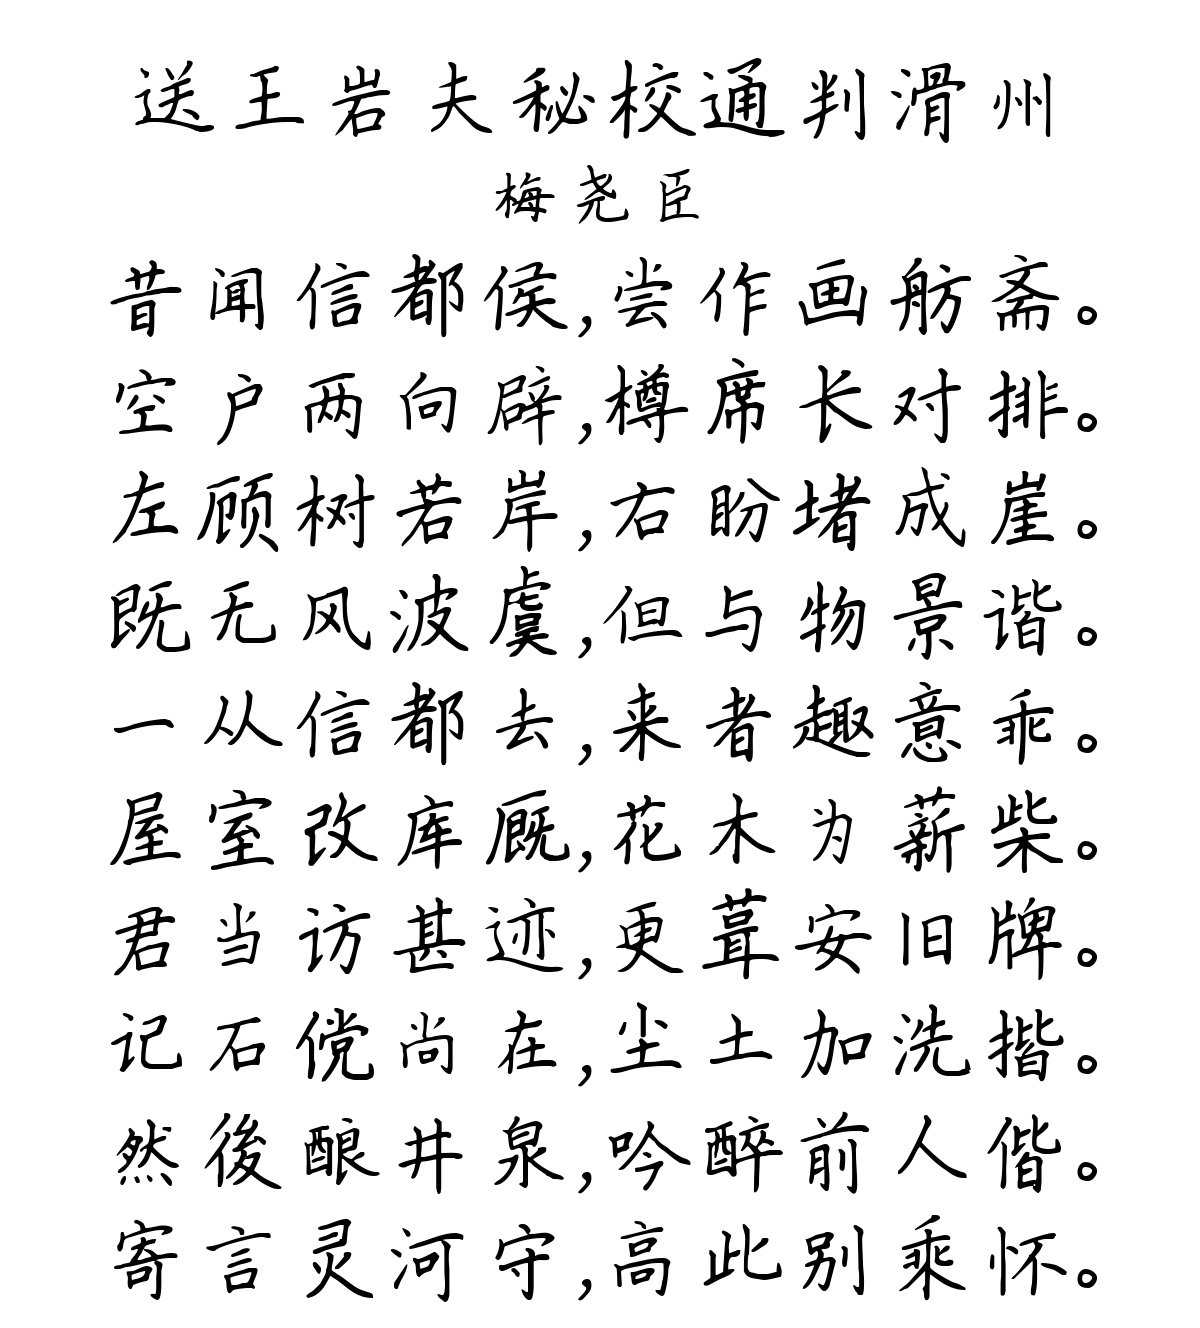 送王岩夫秘校通判滑州
梅尧臣
昔闻信都侯,尝作画舫斋。
空户两向辟,樽席长对排。
左顾树若岸,右盼堵成崖。
既无风波虞,但与物景谐。
一从信都去,来者趣意乖。
屋室改库厩,花木为薪柴。
君当访甚迹,更葺安旧牌。
记石傥尚在,尘土加洗揩。
然後酿井泉,吟醉前人偕。
寄言灵河守,高此别乘怀。